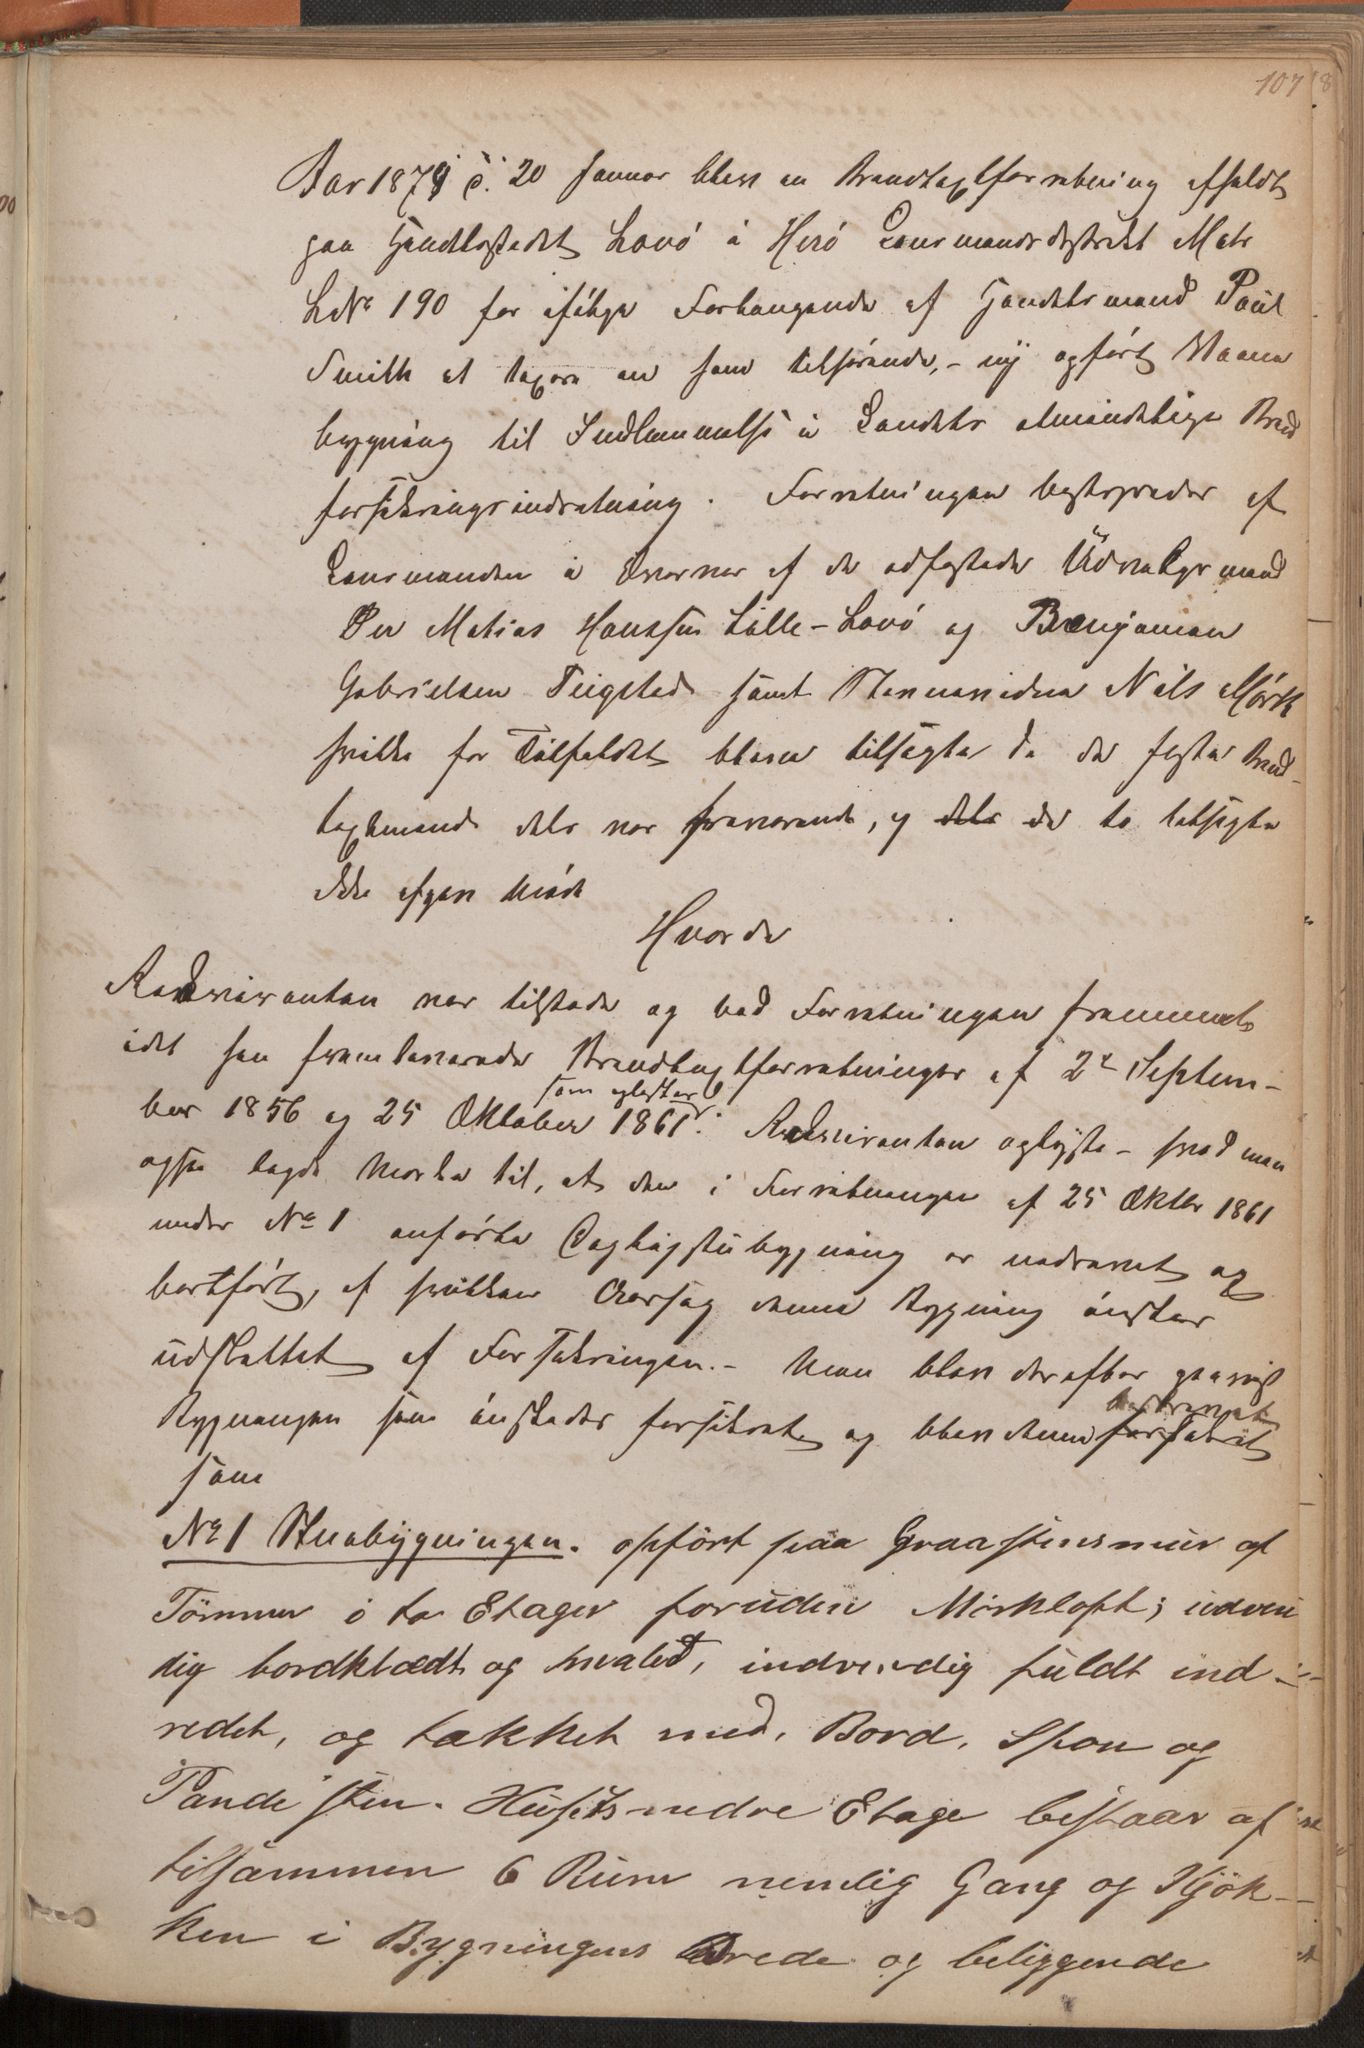 107
Aar 1879 d. 20 Januar blev en Brandtaxtforretning afholdt
paa Handelsstedet Lovö i Herö Lensmandsdistrikt Matr
L.N.º 190 for ifølge Forlangende af Handelsmand Paul
Smith at taxere en ham tilhørende, - ny opført Vaane
bygning til Indlemmelse i Landets almindelige Brand
forsikringsindretning. Forretningen bestyredes af
Lensmanden i Overvær af de edfæstede Udvalgsmænd
Per Matias Hanssen Lille-Lovö og Benjamin
Gabrielsen Teigstad samt Stenersönnen Nils Mörk
hvilke for Tilfældet bleve tilsagte da de faste Brand-
taxtmænd dels var fraværende, og dels de to tilsagte
ikke afgav Möde
Hvorda
Rekvirenten var tilstede og bad Forretningen fremmet
idet han fremleverede Brandtaxtforretninger af 2º Septem-
ber 1856 og 25 Oktober 1861. som oplæstes Rekvirenten oplyste - hvad man
ogsaa lagde Mærke til, at den i Forretningen af 25 Oktbr 1861
under Nº 1 anförte Dagligstubygning er nedrevet og
bortfört, af hvilken Aarsag denne Bygning önskes
udslettet af Forsikringen. - Man blev derefter paavist
Bygningen som önskedes forsikret og blev denne forsikret beskrevet
som
Nº 1 Stuebygningen. opfört paa Graastensmur af
Tömmer i to Etager foruden Mörkloft; udven
dig bordklædt og hvalet, indvendig fuldt ind-
redet, og tækket med, Bord, Spon og
Pandesten. Husets nedre Etage bestaar af
tilsammen 6 Rum nemlig Gang og Kjök-
ken i Bygningens Brede og beliggende